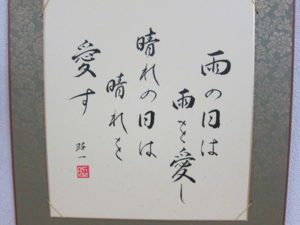 雨の日は
雨を愛し
晴れの日は
晴れを
愛す